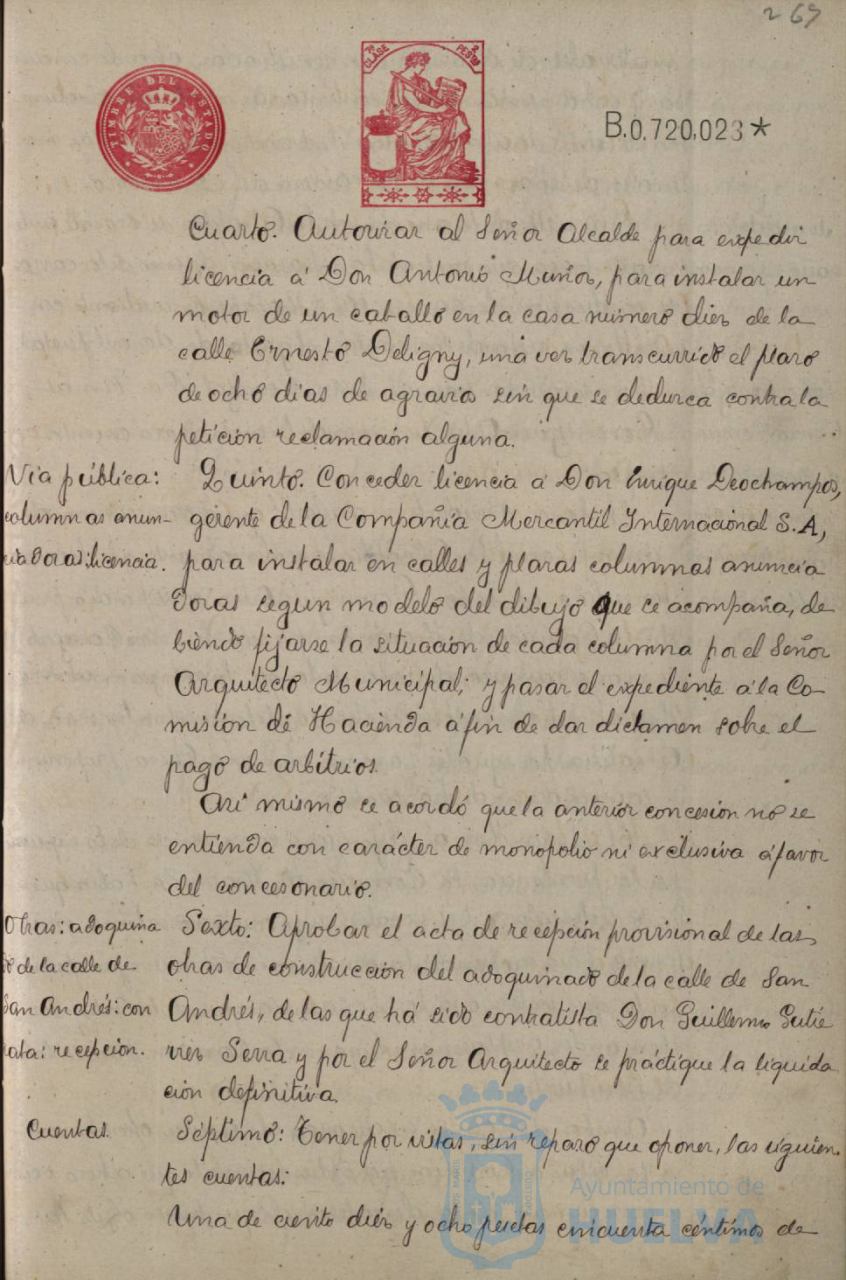 269
TIMBRE DEL ESTADO
7ª CLASE 2 PESTAS
B.0.720,023*
Cuarto. Autorizar al Señor Alcalde para expedir
licencia á Don Antonio Muñoz, para instalar un
motor de un caballo en la casa número diez de la
calle Ernesto Deligny, una vez transcurrido el plazo
de ocho dias de agravios sin que se deduzca contra la
petición reclamación alguna.
Via pública:
columnas anun-
ciadoras: licencia.
Quinto. Conceder licencia a Don Enrique Deochampos,
gerente de la Compañia Mercantil Internacional S.A,
para instalar en calles y plazas columnas anuncia
doras segun modelo del dibujo que se acompaña, de
biendo fijarse la situación de cada columna por el Señor
Arquitecto Municipal; y pasar el expediente á la Co-
misión de Hacienda á fin de dar dictamen sobre el
pago de arbitrios.
Asi mismo se acordó que la anterior concesion no se
entienda con carácter de monopolio ni exclusiva á favor
del concesonario.
Obras: adoquina
do de la calle de
San Andrés: con
trata: recepcion.
Sexto: Aprobar el acta de recepción provisional de las
obras de construcción del adoquinado de la calle de San
Andrés, de las que há sido contratista Don Guillermo Gutié
rrez Serra y por el Señor Arquitecto se practique la liquida
ción definitiva.
Cuentas.
Séptimo: Tener por vistas, sin reparo que oponer, las siguien-
tes cuentas:
Una de ciento diez y ocho pesetas cincuenta céntimos de
Ayuntamiento de
HUELVA